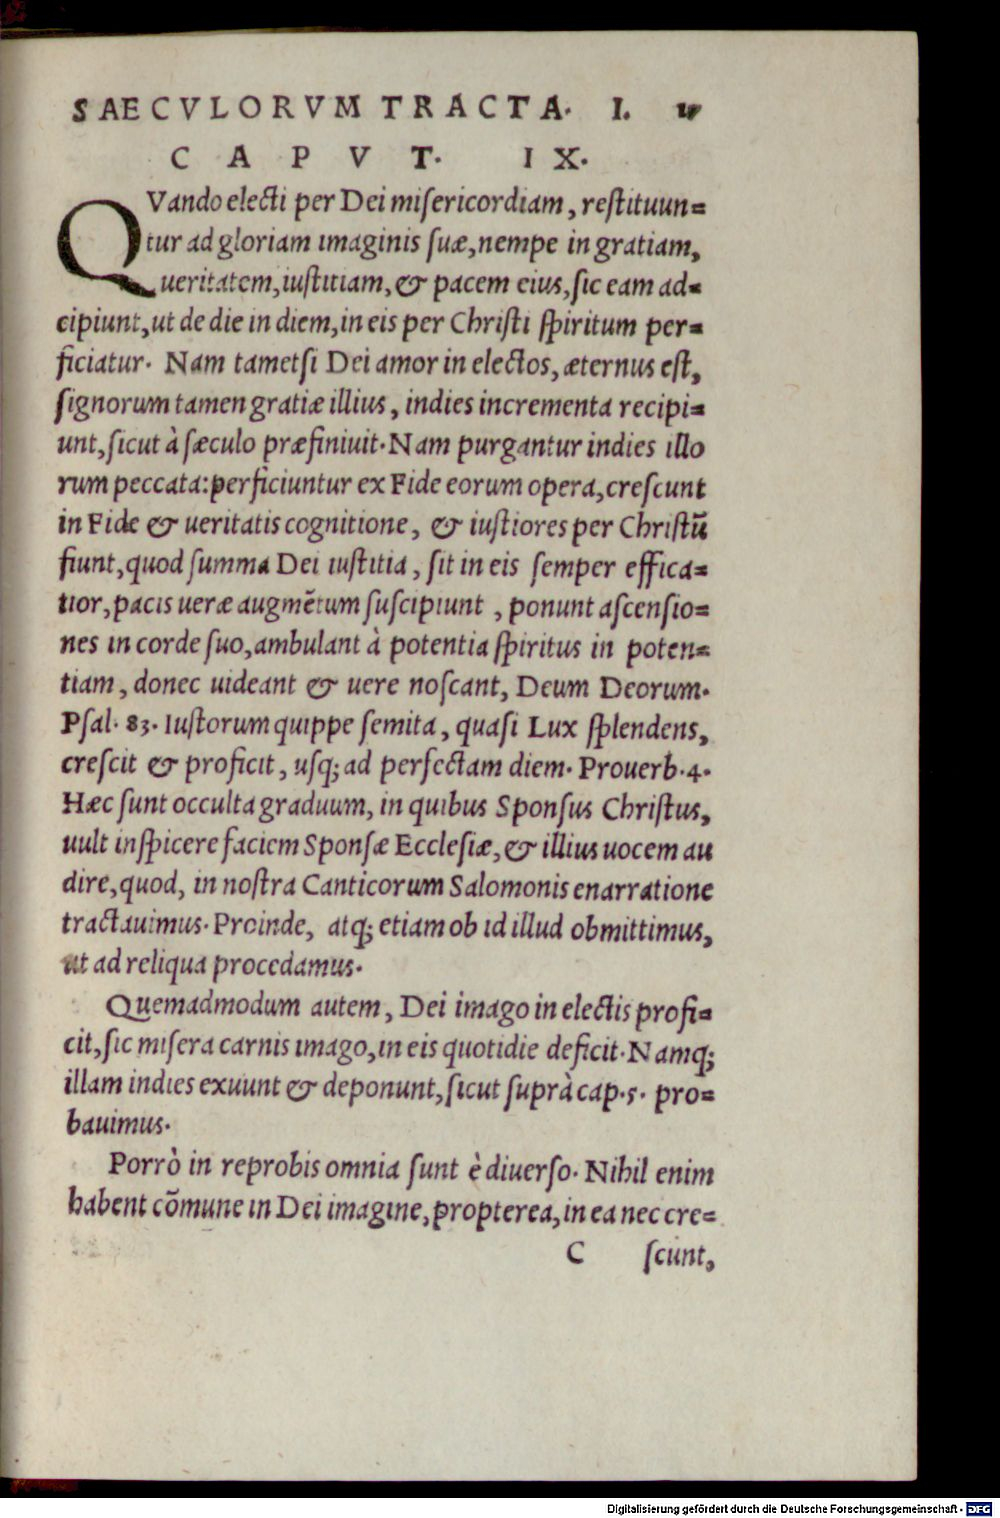 SAECVLORVM TRACTA. I.
CAPVT. IX.
QVando electi per Dei misericordiam, restituun=
tur ad gloriam imaginis suæ, nempe in gratiam,
ueritatem, iustitiam, & pacem eius, sic eam ad=
cipiunt, ut de die in diem, in eis per Christi spiritum per=
ficiatur. Nam tametsi Dei amor in electos, æternus est,
signorum tamen gratiæ illius, indies incrementa recipi=
unt, sicut à sæculo præfiniuit. Nam purgantur indies illo
rum peccata: perficiuntur ex Fide eorum opera, crescunt
in Fide & ueritatis cognitione, & iustiores per Christũ
fiunt, quod summa Dei iustitia, sit in eis semper effica=
tior, pacis ueræ augmẽtum suscipiunt, ponunt ascensio=
nes in corde suo, ambulant à potentia spiritus in poten=
tiam, donec uideant & uere noscant, Deum Deorum.
Psal. 83. Iustorum quippe semita, quasi Lux splendens,
crescit & proficit, usq; ad perfectam diem. Prouerb. 4.
Hæc sunt occulta graduum, in quibus Sponsus Christus,
uult inspicere faciem Sponsæ Ecclesiæ, & illius uocem au
dire, quod, in nostra Canticorum Salomonis enarratione
tractauimus. Proinde, atq; etiam ob id illud obmittimus,
ut ad reliqua procedamus.
Quemadmodum autem, Dei imago in electis profi=
cit, sic misera carnis imago, in eis quotidie deficit. Namq;
illam indies exuunt & deponunt, sicut suprà cap. 5. pro=
bauimus.
Porrò in reprobis omnia sunt è diuerso. Nihil enim
habent cõmune in Dei imagine, propterea, in ea nec cre=
C scunt,
Digitalisierung gefördert durch die Deutsche Forschungsgemeinschaft - DFG